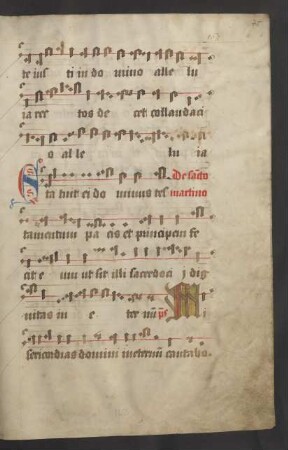 te ius ti in do mino alle lu
ia rec tos de cet collaudaci
o al le lu ia
De sācto
Sta tuit ei do minus tes martino
tamentum pa cis et principem fe
cit e um ut sit illi sacerdoci j dig
nitas in e ter nū ps Mi
sericordias domini in eternū cantabo.